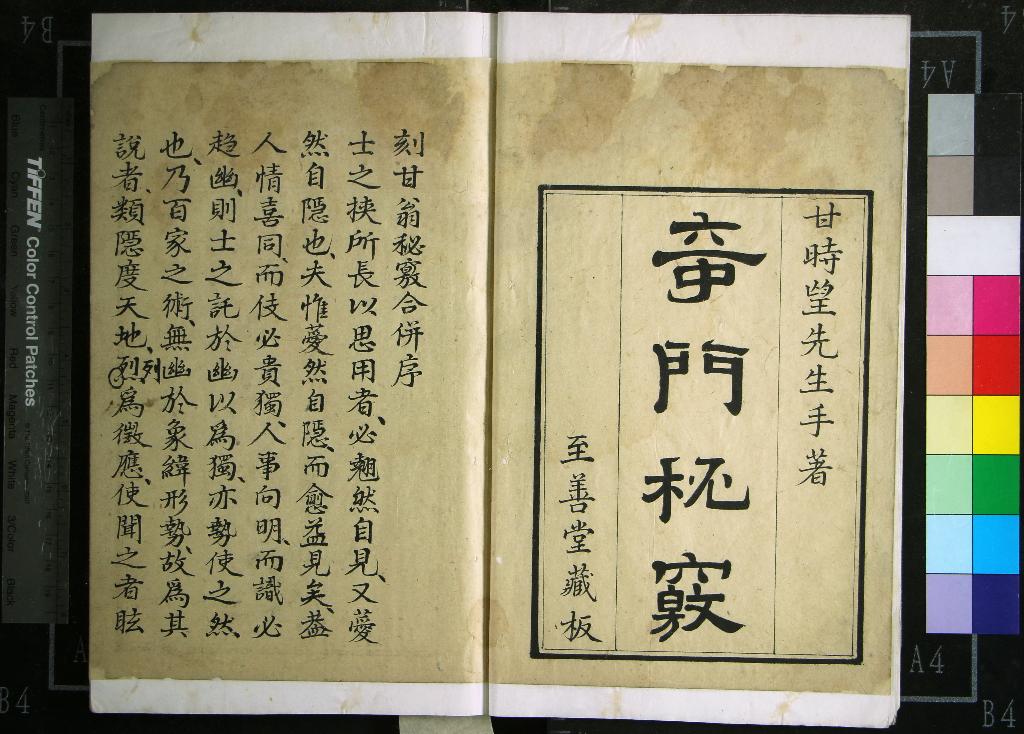 甘時望先生手著
奇門秘竅
至善堂藏板
刻甘翁秘竅合併序
士之挾所長以思用者、必翹然自見、又薆
然自隱也、夫惟薆然自隱、而愈益見矣、蓋
人情喜同、而伎必貴獨、人事向明、而識必
趋幽、則士之託於幽以為獨、亦勢使之然
也、乃百家之術、無幽於象緯形勢、故為其
說者、類隱度天地、烈列為徵應、使聞之者眩
TIFFEN Color Control Patches
Blue
Cyan
Green
Yellow
Red
Magenta
White
3/Color
Black
B4
A4
A4
B4
B4